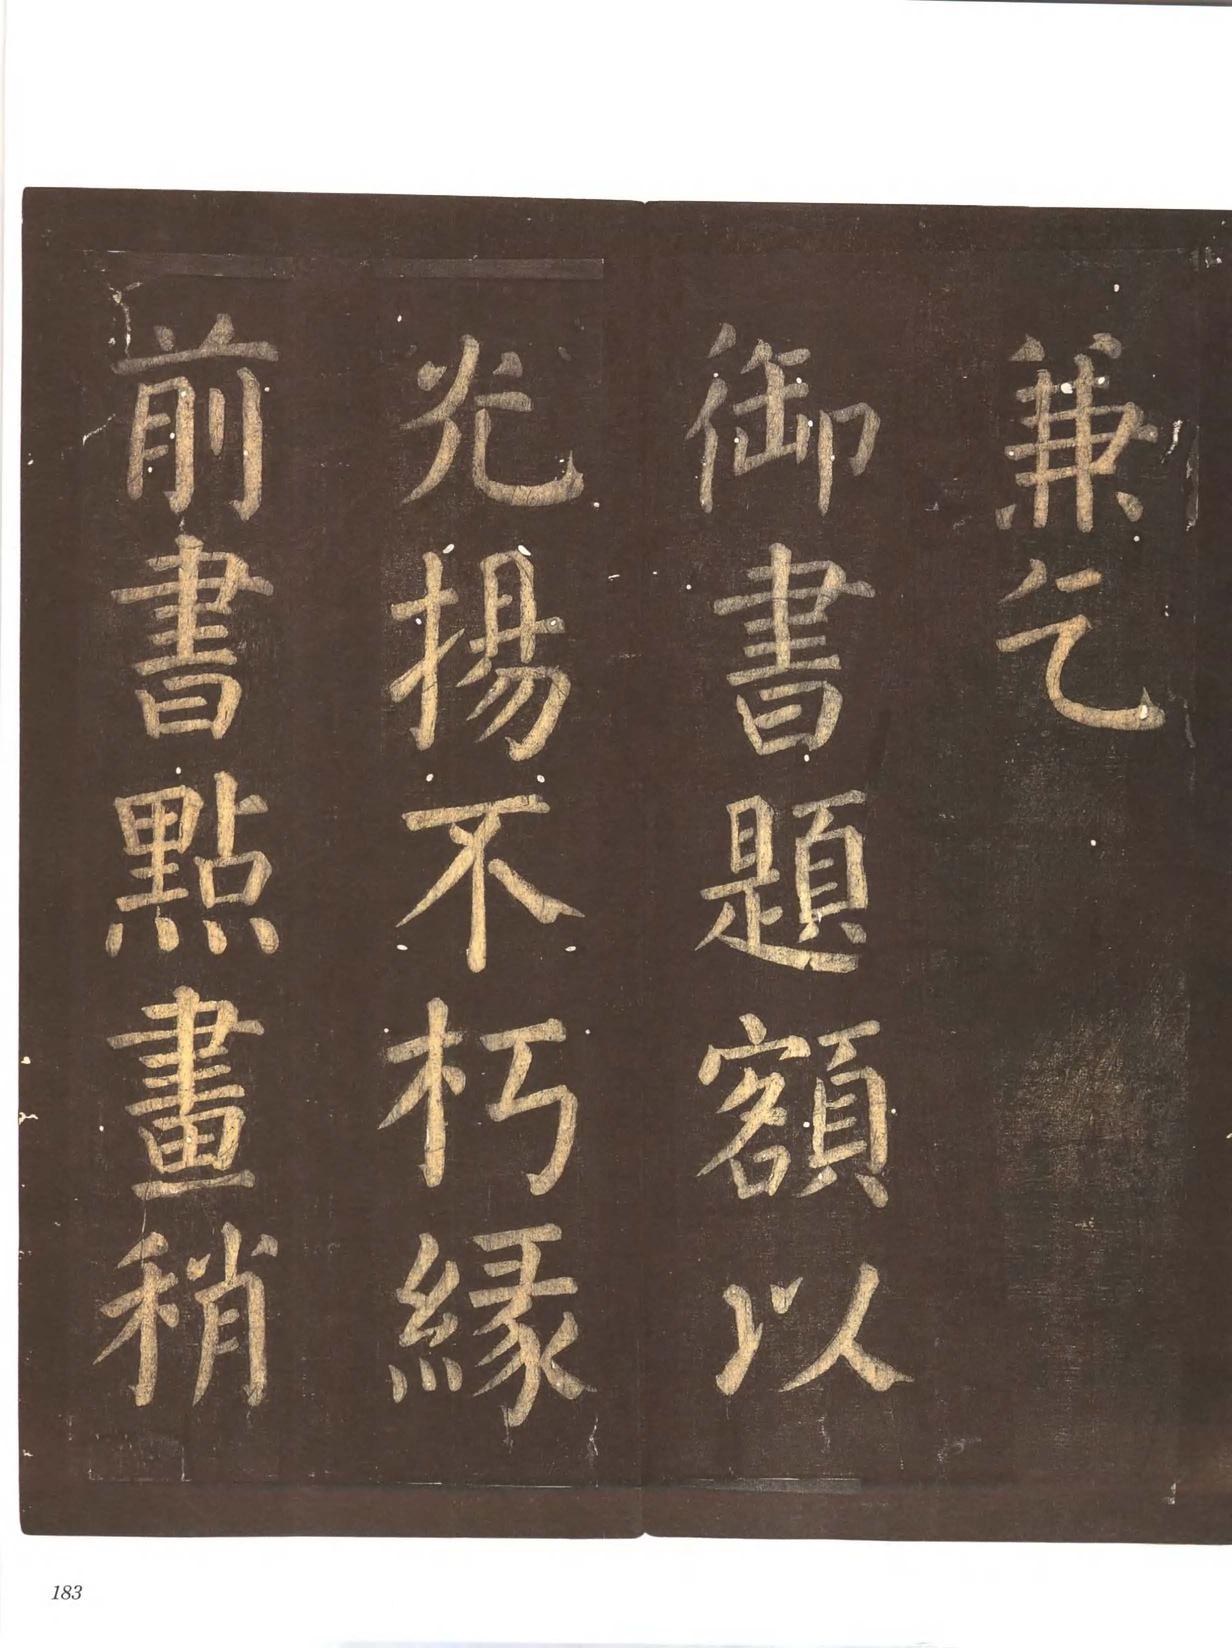 兼乞
御書題額以
光揚不朽緣
前書點畫稍
183